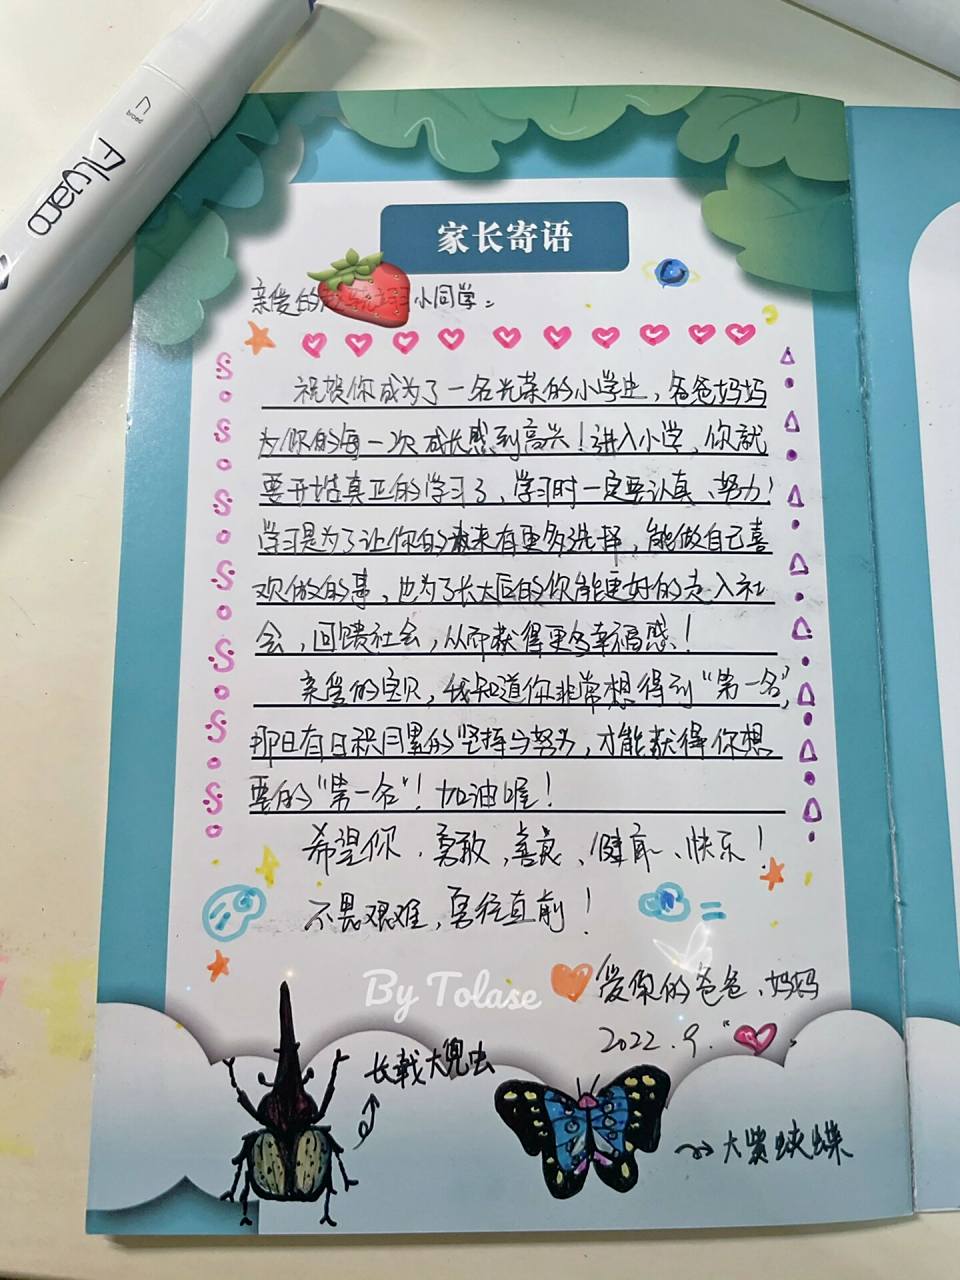 broad
Flysea
家长寄语
亲爱的 小同学:
祝贺你成为了一名光荣的小学生,爸爸妈妈
为你的每一次成长感到高兴!进入小学,你就
要开始真正的学习了,学习时一定要认真、努力!
学习是为了让你的未来有更多选择,能做自己喜
欢做的事,也为了长大后的你能更好的走入社
会,回馈社会,从而获得更多幸福感!
亲爱的宝贝,我知道你非常想得到“第一名”,
那只有日积月累的坚持与努力,才能获得你想
要的“第一名”!加油喔!
希望你,勇敢、善良、健康、快乐!
不畏艰难,勇往直前!
By Tolase
爱你的爸爸、妈妈
2022.9.
长戟大兜虫
大紫蛱蝶